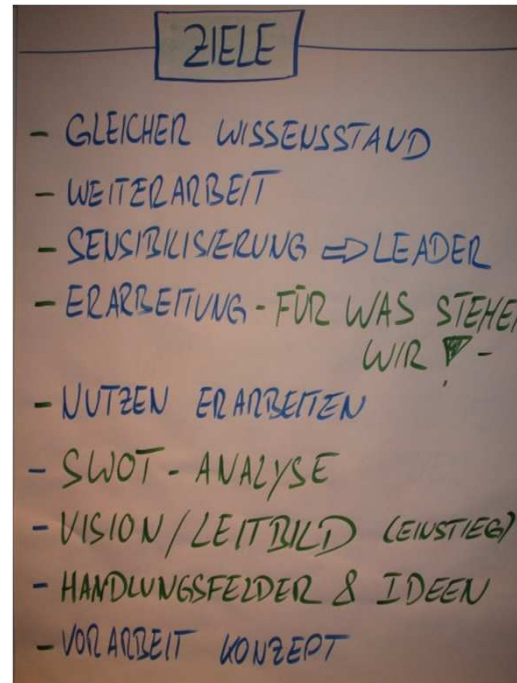 ZIELE
- GLEICHER WISSENSSTAND
- WEITERARBEIT
- SENSIBILISIERUNG ⇨ LEADER
- ERARBEITUNG - FÜR WAS STEHEN
WIR ! -
- NUTZEN ERARBEITEN
- SWOT - ANALYSE
- VISION / LEITBILD (EINSTIEG)
- HANDLUNGSFELDER & IDEEN
- VORARBEIT KONZEPT